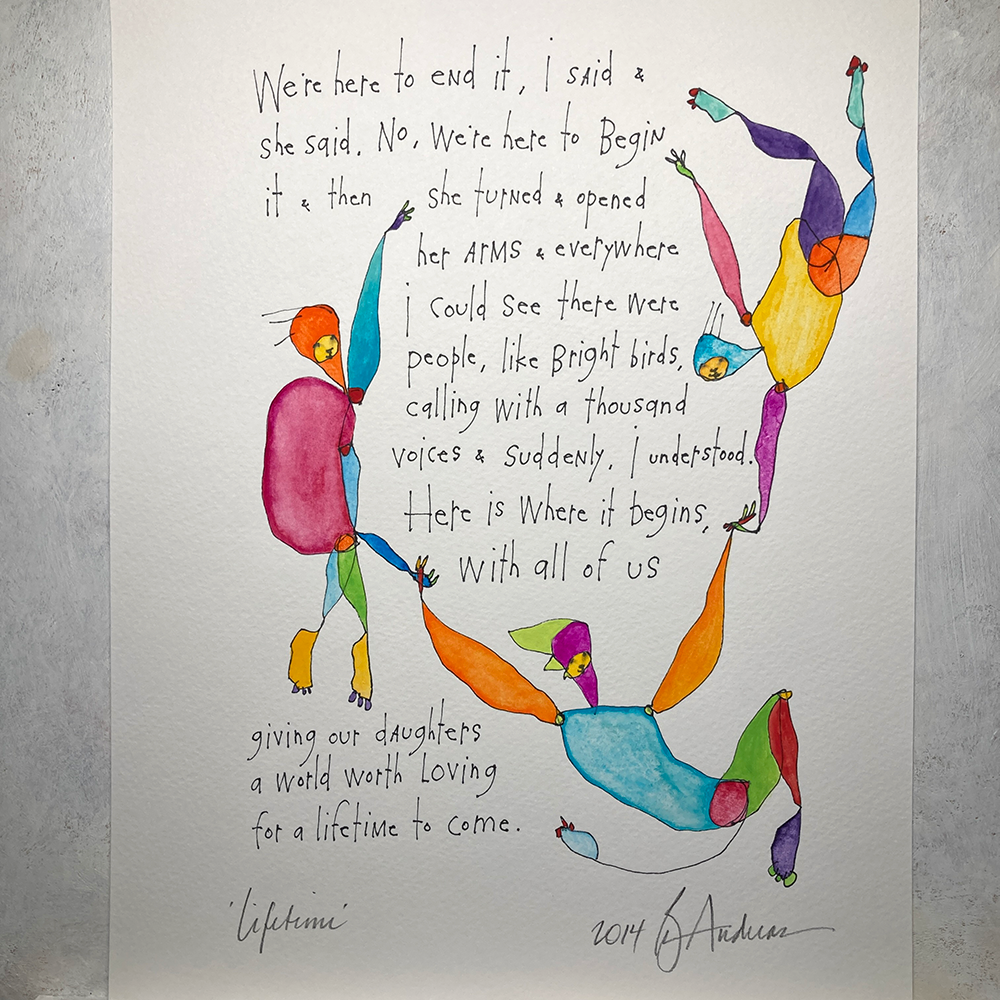 We're here to end it, i said &
she said. No, We're here to Begin
it & then she turned & opened
her arms & everywhere
i could see there were
people, like Bright birds,
calling with a thousand
voices & suddenly, i understood.
Here is where it begins,
with all of us
giving our daughters
a world worth Loving
for a lifetime to come.
'Lifetime'
2014 Andreas